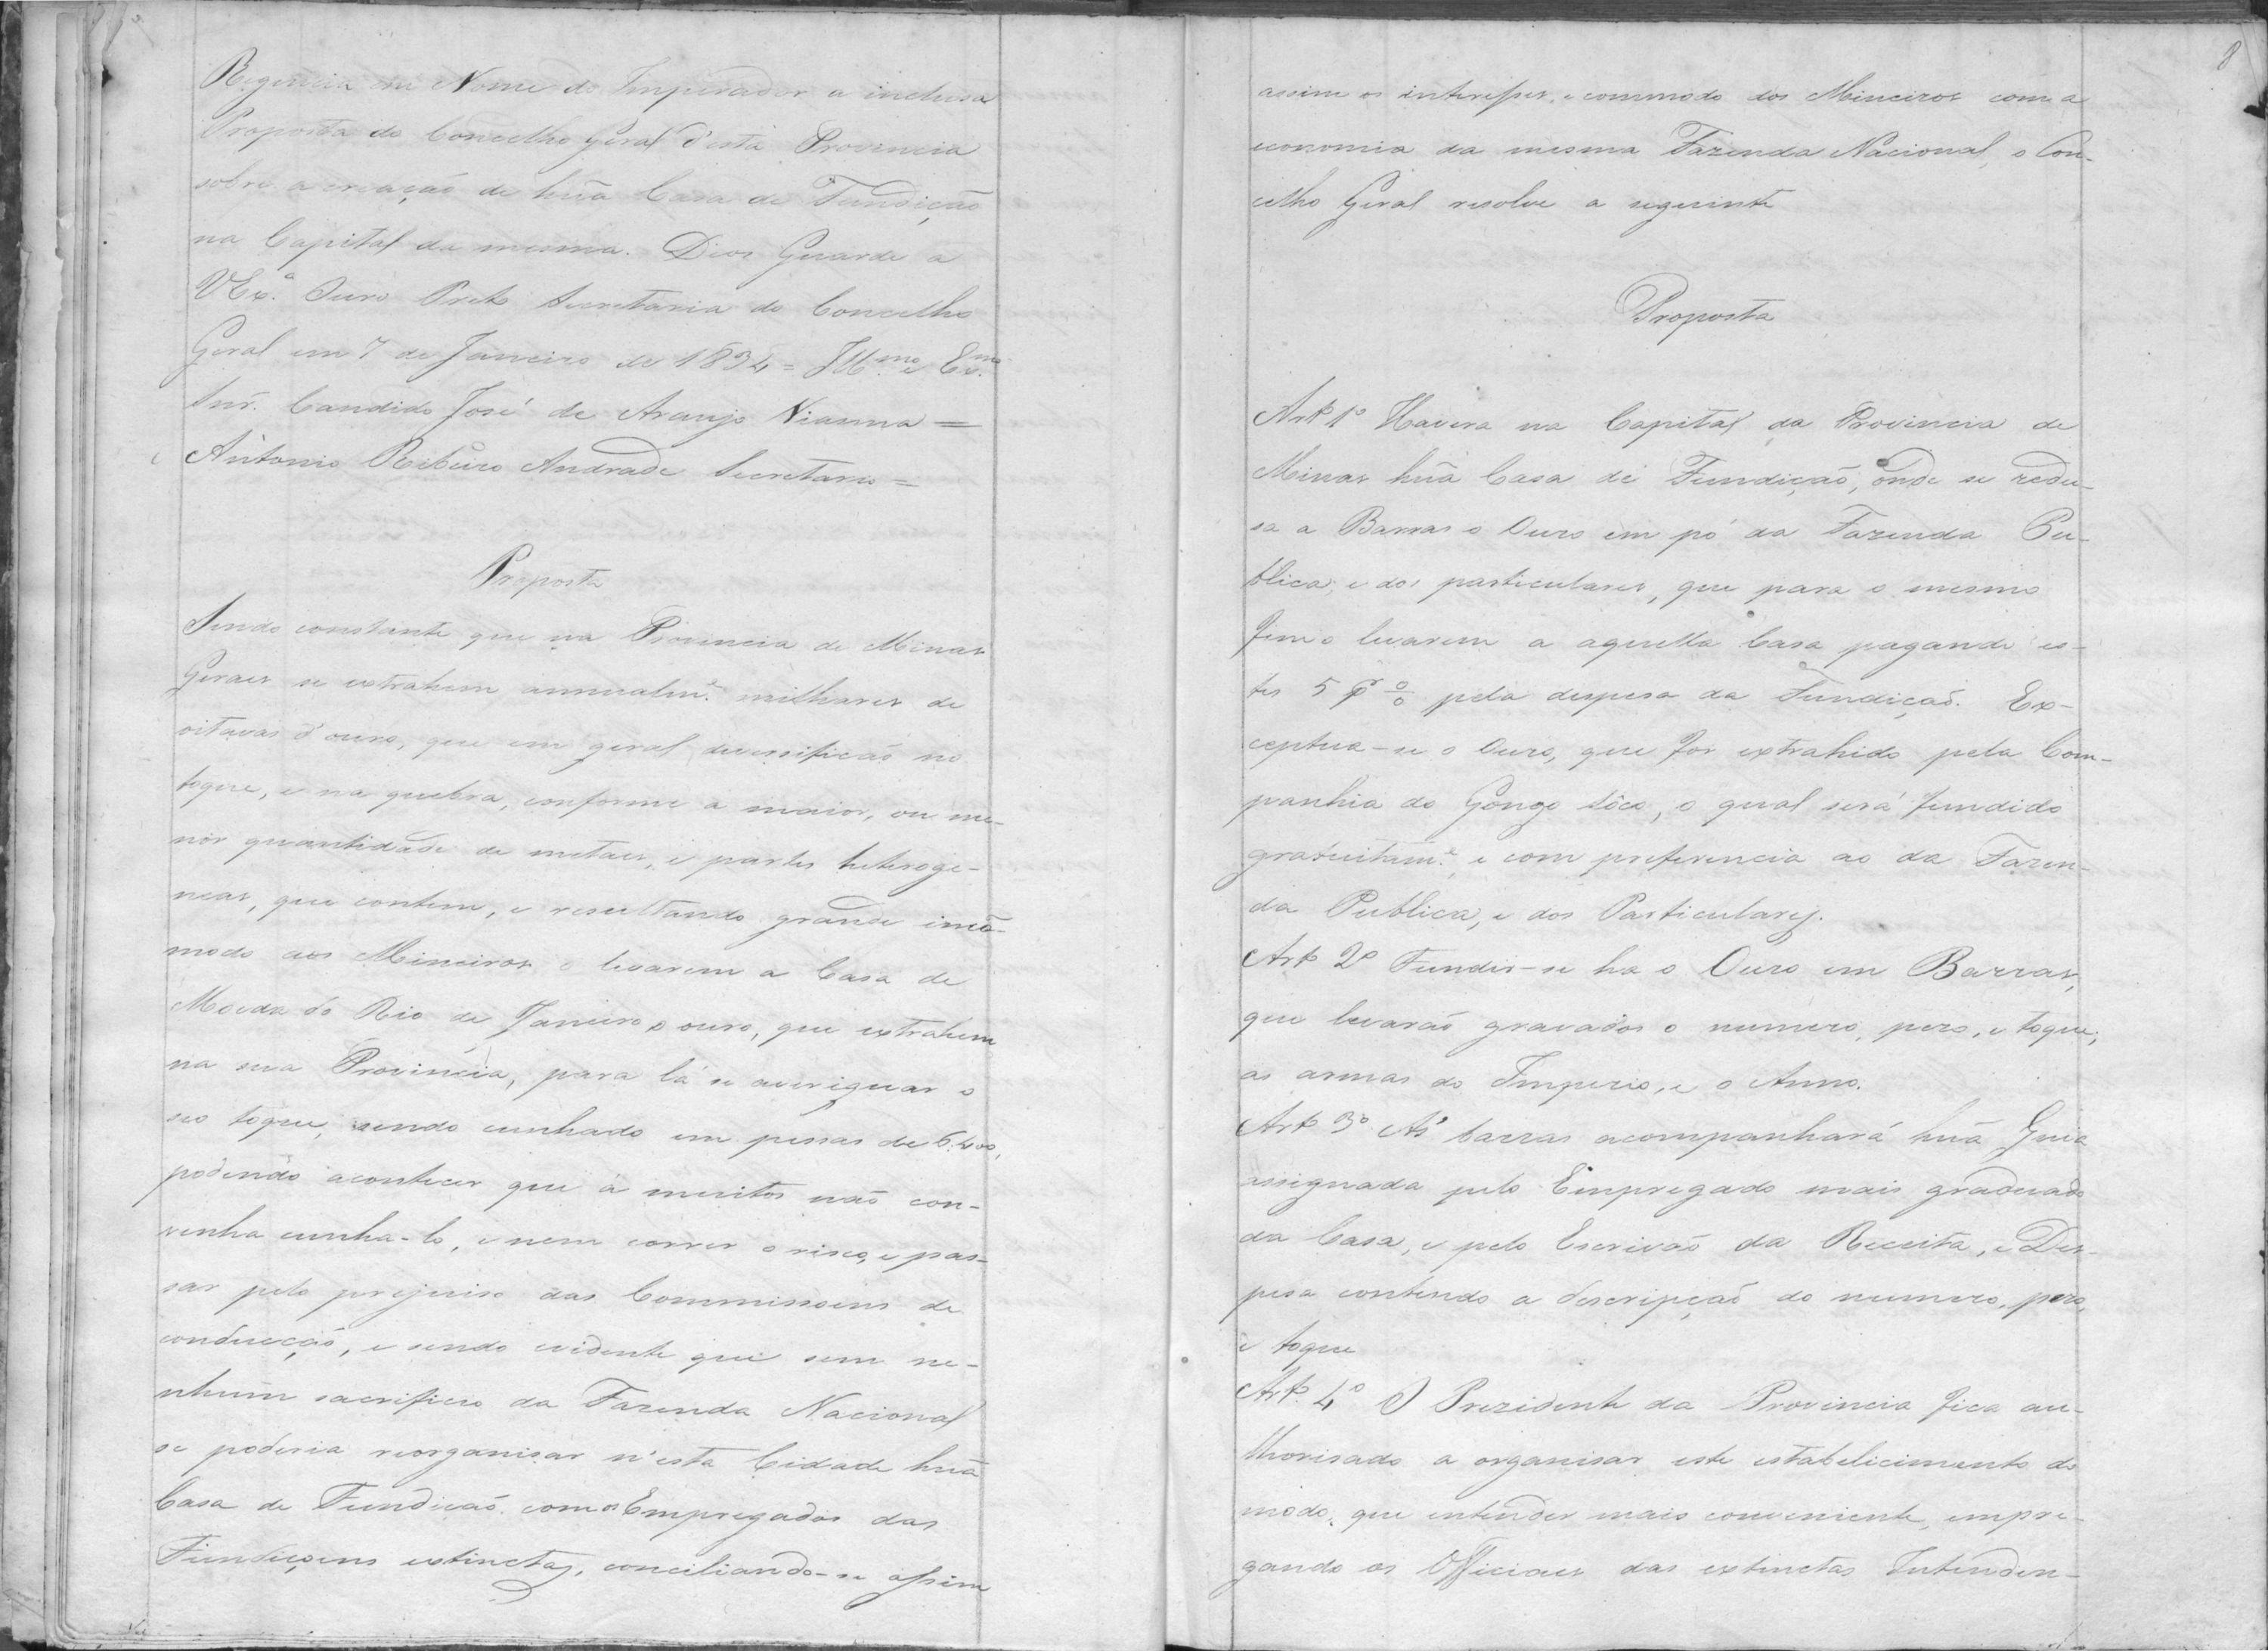 Regencia em Nome do Imperador a inclusa
Proposta do Concelho geral d'esta Provincia
sobre a creação de huã Casa de Fundição
na Capital da mesma. Deos Guarde a
VEx.ª Ouro Preto Secretaria do Concelho
Geral em 7 de Janeiro de 1834 = Ill.mo e Ex.mo
Snr. Candido José de Araujo Vianna =
Antonio Ribeiro Andrade Secretario =
Proposta
Sendo constante que na Provincia de Minas
Geraes se extrahem annualm.e milhares de
oitavas d'ouro, que em geral diversificaõ no
toque, e na quebra, conforme a maior, ou me-
nor quantidade de metaes, e partes heteroge-
neas, que contem, e resultando grande incõ-
modo aos Mineiros o levarem a Casa de
Moeda do Rio de Janeiro o ouro, que extrahem
na sua Provincia, para lá se averiguar o
seo toque, sendo cunhado em pessas de 6.400,
podendo acontecer que a muitos naõ con-
venha cunha-lo, e nem correr o risco, e pas-
sar pelo prejuiso das Commissoens de
conducção, e sendo evidente que sem ne-
nhum sacrificio da Fazenda Nacional
se poderia reorganisar n'esta Cidade huã
Casa de Fundicaõ com os Empregados das
Fundiçoens extinctas, conciliando-se assim
8
assim os interesses, e commodo dos Mineiros com a
economia da mesma Fazenda Nacional, o Con-
celho Geral resolve a seguinte
Proposta
Artº 1º Havera na Capital da Provincia de
Minas huã Casa de Fundição, onde se redu-
sa a Barras o Ouro em pó da Fazenda Pu-
blica, e dos particulares, que para o mesmo
fim o levarem a aquella Casa pagando es-
tes 5 pr % pela despesa da Fundição. Ex-
ceptua-se o Ouro, que for extrahido pela Com-
panhia do Gongo Sôco, o qual será fundido
gratuitam.e, e com preferencia ao da Fazen-
da Publica, e dos Particulares.
Artº 2º Fundir-se ha o Ouro em Barras,
que levaraõ gravados o numero, pezo, e toque,
as armas do Imperio, e o Anno.
Artº 3º As barras acompanhará huã Guia
assignada pelo Empregado mais graduado
da Casa, e pelo Escrivaõ da Receita, e Des-
pesa contendo a descripçaõ do numero, pezo,
e toque
Artº 4º O Prezidente da Provincia fica au-
thorisado a organisar este estabelicimento do
modo, que entender mais conveniente, empre-
gando os Officiaes das extinctas Intenden-